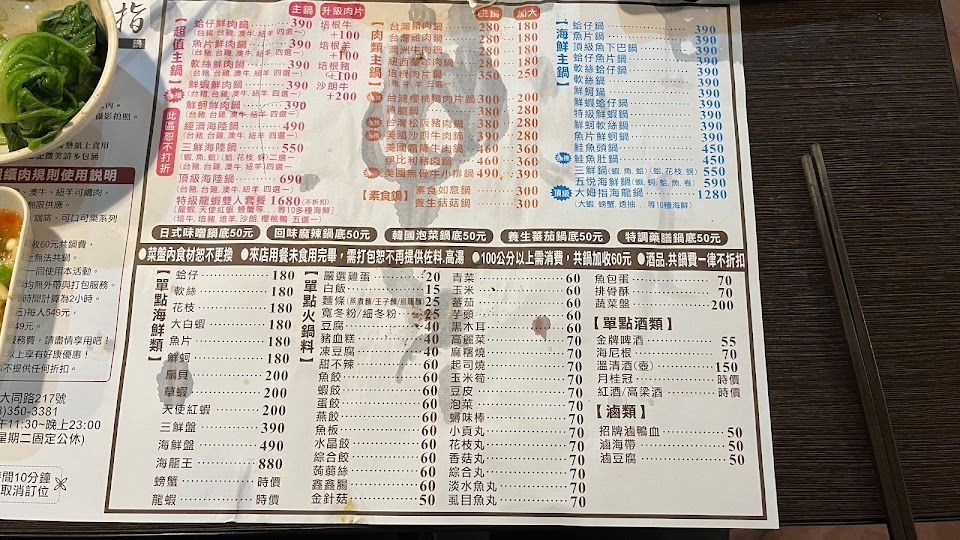 指
鍋
【超值主鍋】
主鍋 升級肉片
蛤仔鮮肉鍋 390
(台豬,台雞,澳牛,紐羊 四選一)
魚片鮮肉鍋 390
(台豬,台雞,澳牛,紐羊 四選一)
軟絲鮮肉鍋 390
(台豬,台雞,澳牛,紐羊 四選一)
鮮蝦鮮肉鍋 390
(台豬,台雞,澳牛,紐羊 四選一)
鮮蚵鮮肉鍋 390
(台豬,台雞,澳牛,紐羊 四選一)
經濟海陸鍋 490
(台豬,台雞,澳牛,紐羊 四選一)
三鮮海陸鍋 550
(蝦,魚,蛤)(蛤,花枝,蚵)二選一
(台豬,台雞,澳牛,紐羊 四選一)
頂級海陸鍋 690
(台豬,台雞,澳牛,紐羊 四選一)
特級龍蝦雙人套餐 1680 (不折扣)
(龍蝦,天使紅蝦,螃蟹...等10多種海鮮)
(培牛,培豬,培羊,沙朗,櫻桃鴨 五選一)
此區恕不打折
培根牛
+100
培根羊
+100
培根豬
+100
沙朗牛
+200
【肉類主鍋】
主鍋 加大
台灣豬肉鍋 280 180
台灣雞肉鍋 280 180
澳洲牛肉鍋 280 180
紐西蘭羊肉鍋 280 180
培根肉片鍋 350 250
(豬 牛 羊 三選一)
台灣櫻桃鴨肉片鍋 300 200
雞腿鍋 300 200
台灣松阪豬肉鍋 380 280
美國沙朗牛肉鍋 390 290
美國霜降牛肉鍋 460 360
伊比利豬肉鍋 460 360
美國無骨牛小排鍋 490 390
【素食鍋】
素食如意鍋 300
養生菇菇鍋 300
【海鮮主鍋】
蛤仔鍋 390
魚片鍋 390
頂級魚下巴鍋 390
蛤仔魚片鍋 390
軟絲蛤仔鍋 390
軟絲鍋 390
鮮蝦鍋 390
鮮蝦蛤仔鍋 390
特級鮮蝦鍋 390
鮮蚵鍋 390
鮮蚵軟絲鍋 390
魚片鮮蚵鍋 390
鮭魚頭鍋 450
鮭魚肚鍋 450
三鮮鍋(蝦,魚,蛤)(蛤,花枝,蚵) 550
五悦海鮮鍋(蝦,蚵,蛤,魚,卷) 590
頂級
大姆指海龍鍋 1280
(大蝦,螃蟹,透抽...等10種海鮮)
日式味噌鍋底50元 回味麻辣鍋底50元 韓國泡菜鍋底50元 養生蕃茄鍋底50元 特調藥膳鍋底50元
●菜盤內食材恕不更換 ●來店用餐未食用完畢,需打包恕不再提供佐料.高湯 ●100公分以上需消費,共鍋加收60元 ●酒品.共鍋費一律不折扣
【單點海鮮類】
蛤仔 180
軟絲 180
花枝 180
大白蝦 180
魚片 180
鮮蚵 180
扇貝 200
草蝦 200
天使紅蝦 200
三鮮盤 390
海鮮盤 490
海龍王 880
螃蟹 時價
龍蝦 時價
【單點火鍋料】
嚴選雞蛋 20
白飯 15
麵條(蒸煮麵/王子麵/烏龍麵) 25
寬冬粉/細冬粉 25
豆腐 40
豬血糕 40
凍豆腐 40
甜不辣 60
魚餃 60
蝦餃 60
蛋餃 60
燕餃 60
魚板 60
水晶餃 60
綜合餃 60
蒟蒻絲 60
鑫鑫腸 60
金針菇 50
青菜 60
玉米 60
蕃茄 60
芋頭 60
黑木耳 60
高麗菜 70
麻糬燒 70
起司燒 70
玉米筍 70
豆皮 70
泡菜 70
蟳味棒 70
小貢丸 70
花枝丸 70
香菇丸 70
綜合丸 70
淡水魚丸 70
虱目魚丸 70
魚包蛋 70
排骨酥 70
蔬菜盤 200
【單點酒類】
金牌啤酒 55
海尼根 70
溫清酒(壺) 150
月桂冠 時價
紅酒/高梁酒 時價
【滷類】
招牌滷鴨血 50
滷海帶 50
滷豆腐 50
內。
攝影拍照。
墊紙上食用
記微美請多包涵
續肉規則使用說明
、澳牛、紐羊可續肉,
無限供應。
咖啡、可口可樂系列
收60元共鍋費,
上無法共鍋。
一同使用本活動。
均無外帶與打包服務。
時間計算為2小時。
五)每人549元,
49元。
服務費,請盡情享用吧!
以上享有好康優惠!
不提供任何折扣。
大同路217號
3)350-3381
午11:30~晚上23:00
星期二固定公休)
時間10分鐘
取消訂位